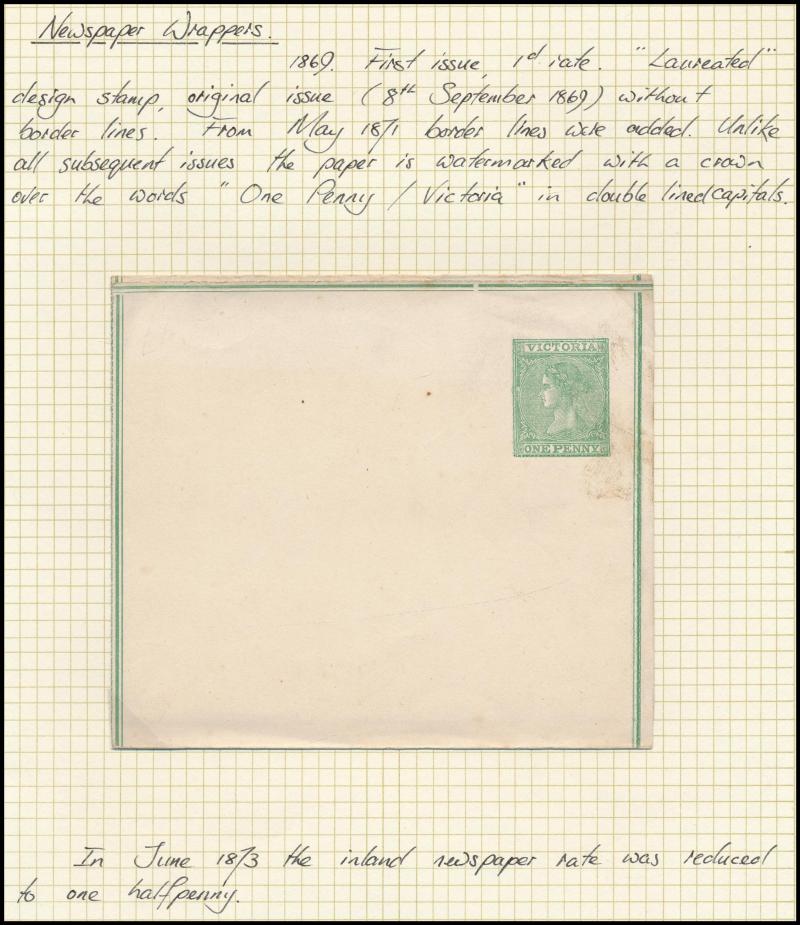 Newspaper Wrappers.
1869. First issue, 1d rate. "Laureated"
design stamp, original issue (8th September 1869) without
border lines. From May 1871 border lines were added. Unlike
all subsequent issues the paper is watermarked with a crown
over the words "One Penny / Victoria" in double lined capitals.
VICTORIA
ONE PENNY
In June 1873 the inland newspaper rate was reduced
to one halfpenny.